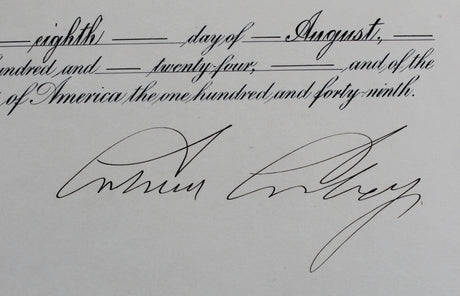 eighth — day of — August, —
undred and — twenty-four, — and of the
of America the one hundred and forty-ninth.